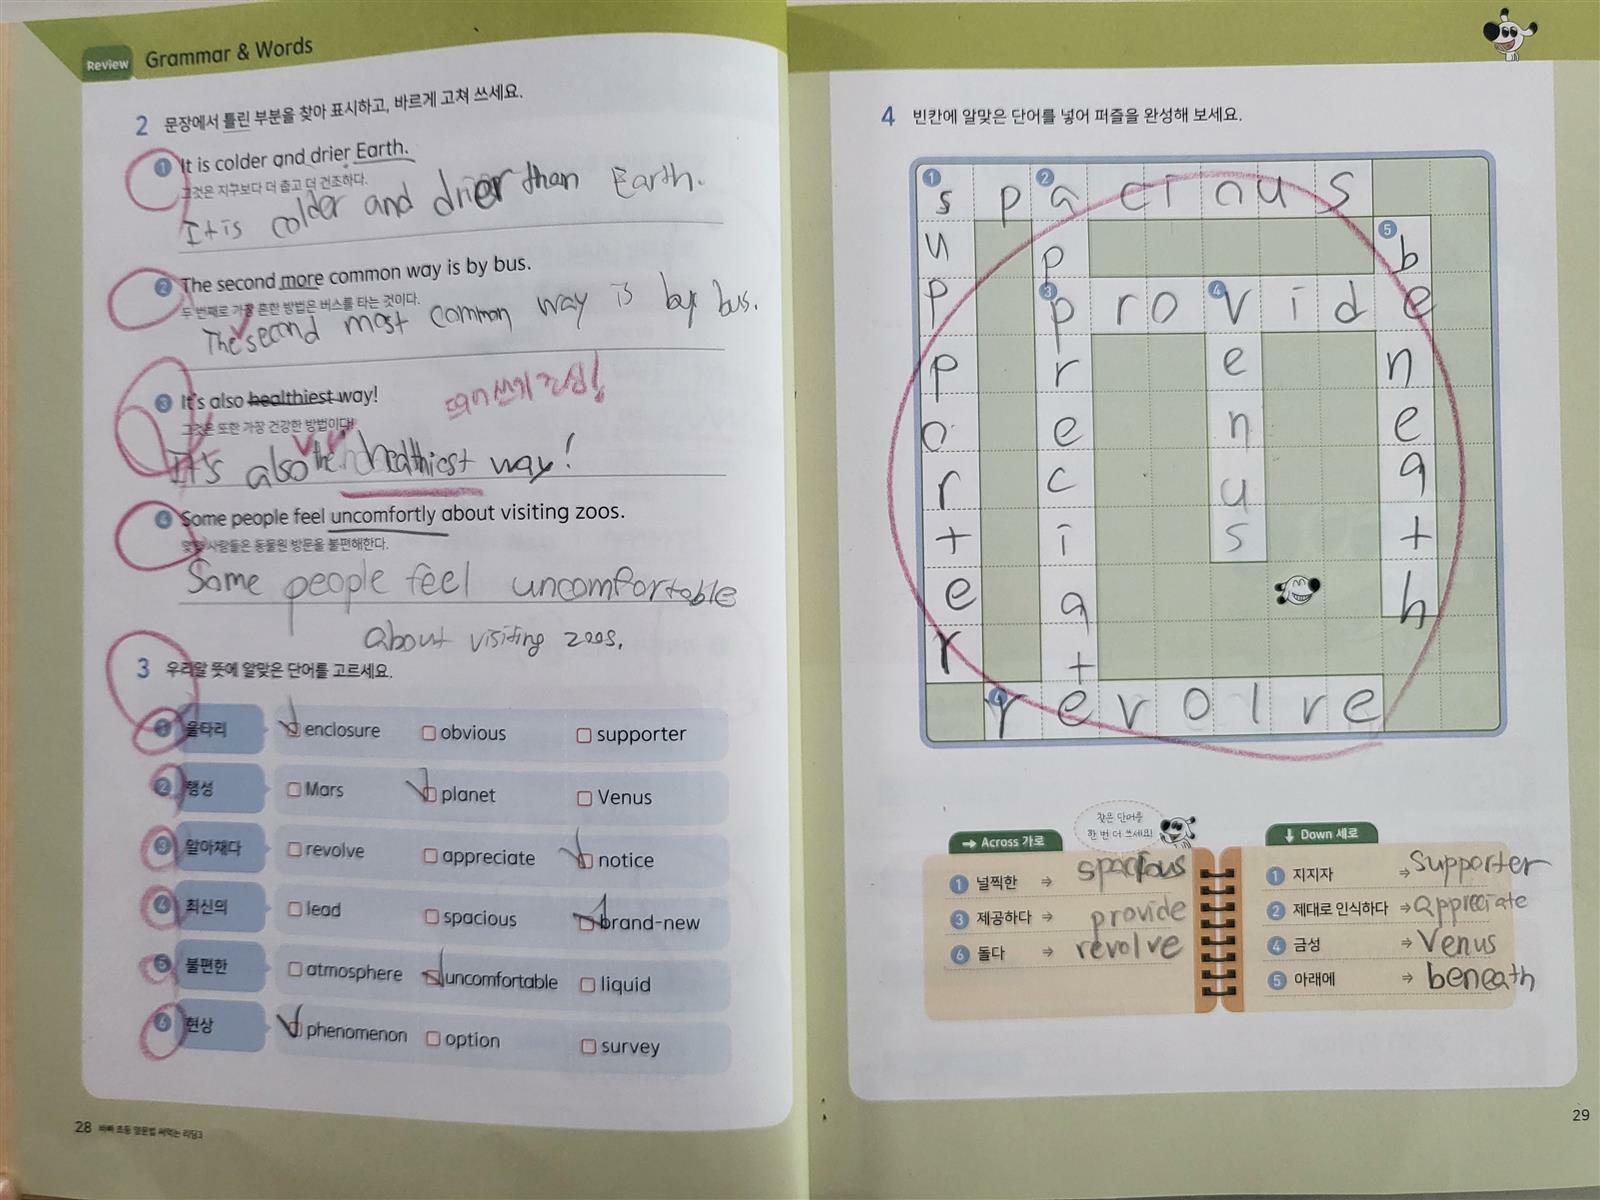 Review Grammar & Words
2 문장에서 틀린 부분을 찾아 표시하고, 바르게 고쳐 쓰세요.
1 It is colder and drier Earth.
그것은 지구보다 더 춥고 더 건조하다.
It is colder and drier than Earth.
2 The second more common way is by bus.
두 번째로 가장 흔한 방법은 버스를 타는 것이다.
The second most common way is by bus.
3 It's also healthiest way!
띄어쓰기 조심!
그것은 또한 가장 건강한 방법이다!
It's also the healthiest way!
4 Some people feel uncomfortly about visiting zoos.
몇몇 사람들은 동물원 방문을 불편해한다.
Some people feel uncomfortable
about visiting zoos.
3 우리말 뜻에 알맞은 단어를 고르세요.
1 울타리 enclosure obvious supporter
2 행성 Mars planet Venus
3 알아채다 revolve appreciate notice
4 최신의 lead spacious brand-new
5 불편한 atmosphere uncomfortable liquid
6 현상 phenomenon option survey
28 바빠 초등 영문법 써먹는 리딩3
4 빈칸에 알맞은 단어를 넣어 퍼즐을 완성해 보세요.
1 s p 2 a c i o u s
u p 5 b
p 3 p r o 4 v i d e
p r e n
o e n e
r c u a
t i s t
e a h
r t
6 r e v o l v e
찾은 단어를
한 번 더 쓰세요!
→ Across 가로
1 널찍한 ⇒ spacious
3 제공하다 ⇒ provide
6 돌다 ⇒ revolve
↓ Down 세로
1 지지자 ⇒ supporter
2 제대로 인식하다 ⇒ appreciate
4 금성 ⇒ Venus
5 아래에 ⇒ beneath
29